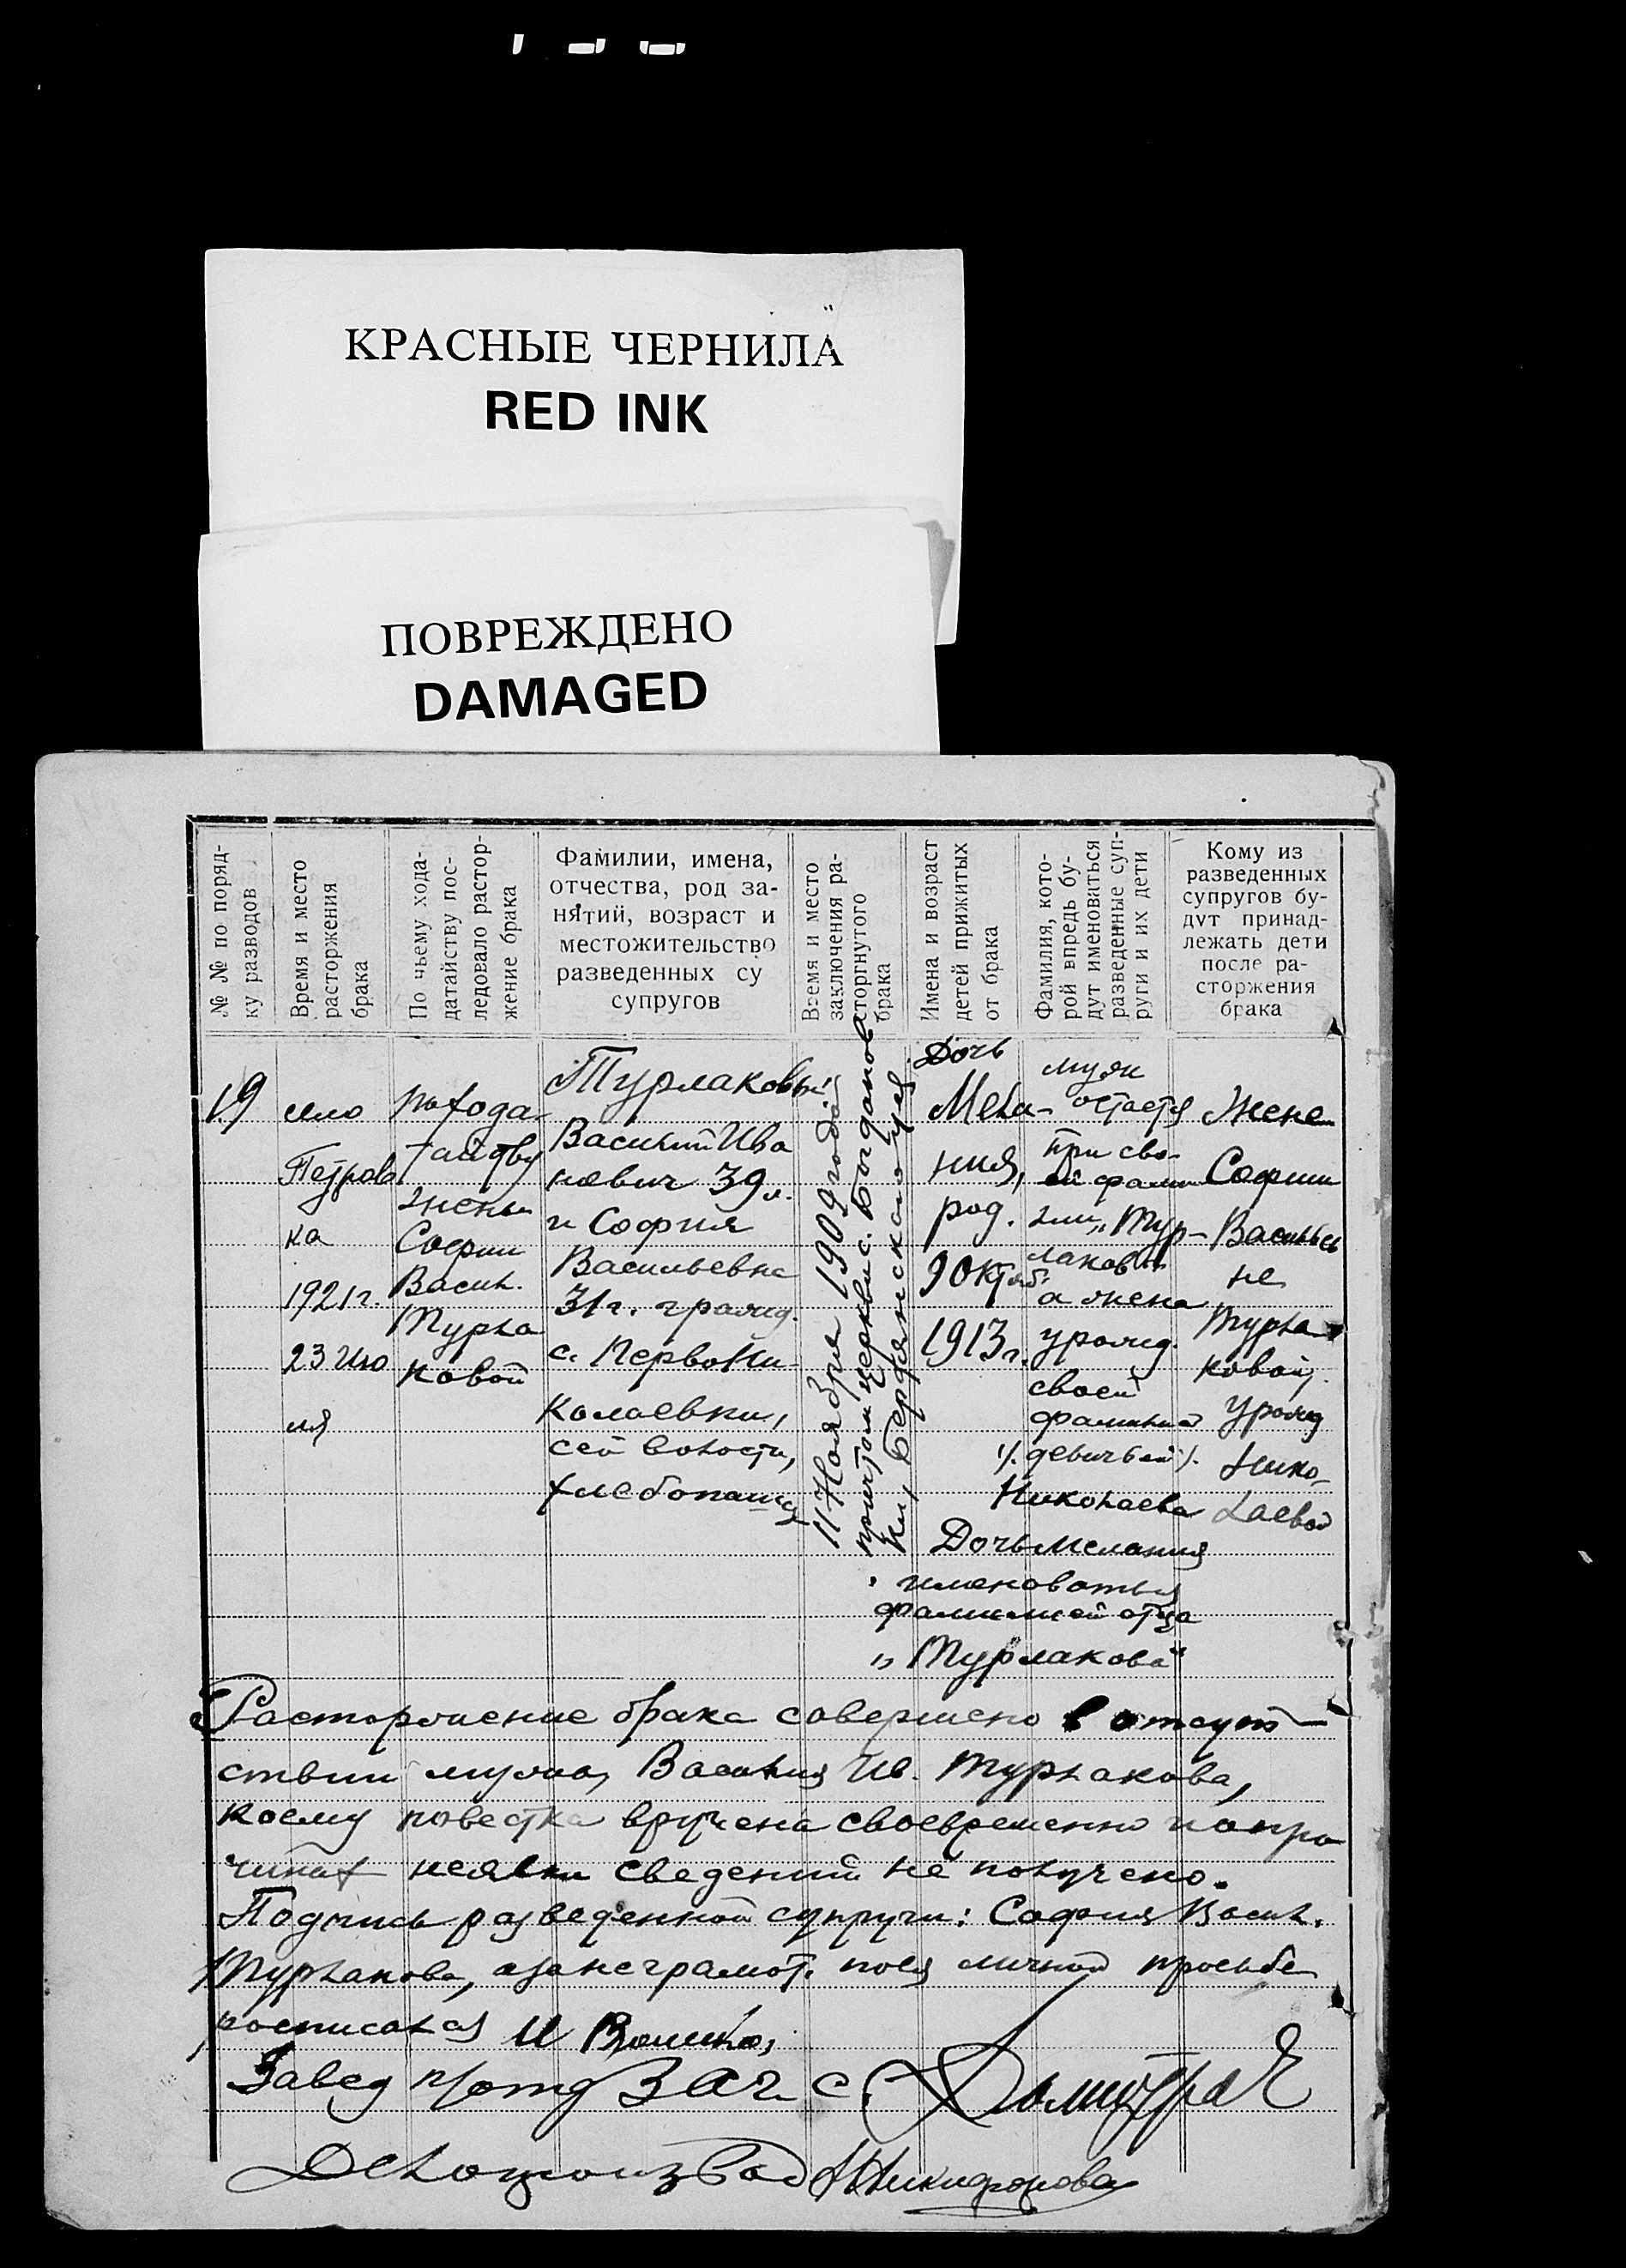 КРАСНЫЕ ЧЕРНИЛА
RED INK
ПОВРЕЖДЕНО
DAMAGED
№ № по поряд-
ку разводов
Время и место
расторжения
брака
По чьему хода-
датайству пос-
ледовало растор-
жение брака
Фамилии, имена,
отчества, род за-
нятий, возраст и
местожительство
разведенных су
супругов
Время и место
заключения ра-
сторгнутого
брака
Имена и возраст
детей прижитых
от брака
Фамилия, кото-
рой впредь бу-
дут именоваться
разведенные суп-
руги и их дети
Кому из
разведенных
супругов бу-
дут принад-
лежать дети
после ра-
сторжения
брака
19
село
Петров
ка
1921 г.
23 Ию
ля
по хода-
тайству
жены
Софии
Васил.
Турла
ковой
Турлаковы:
Василий Ива
нович 39 л.
и София
Васильевна
31 г. гражд.
с. Первони-
колаевки,
сей волости,
хлебопашцы
11 Ноября 1909 года
причтом церкви с. Богданов
ки, Бердянского уез
Дочь
Мела-
ния,
род.
9 Октяб.
1913 г.
муж
остается
при сво-
ей фами
лии „Тур-
лаков“
а жена
урожд.
своей
фамилией
/. девичьей /.
Николаева
Дочь Мелания
именоваться
фамилией отца
„Турлакова“
Жене
Софии
Василье
не
Турла
ковой,
урожд
Нико-
лаевой
Расторжение брака совершено в отсут-
ствии мужа, Василия Ив. Турлакова,
коему повестка вручена своевременно и о при
чинах неявки сведений не получено.
Подпись разведенной супруги: София Васил.
Турлакова, а за неграмот. по ея личной просьбе
росписался И
Завед п/отд ЗАГС
Делопроизвод Никифорова